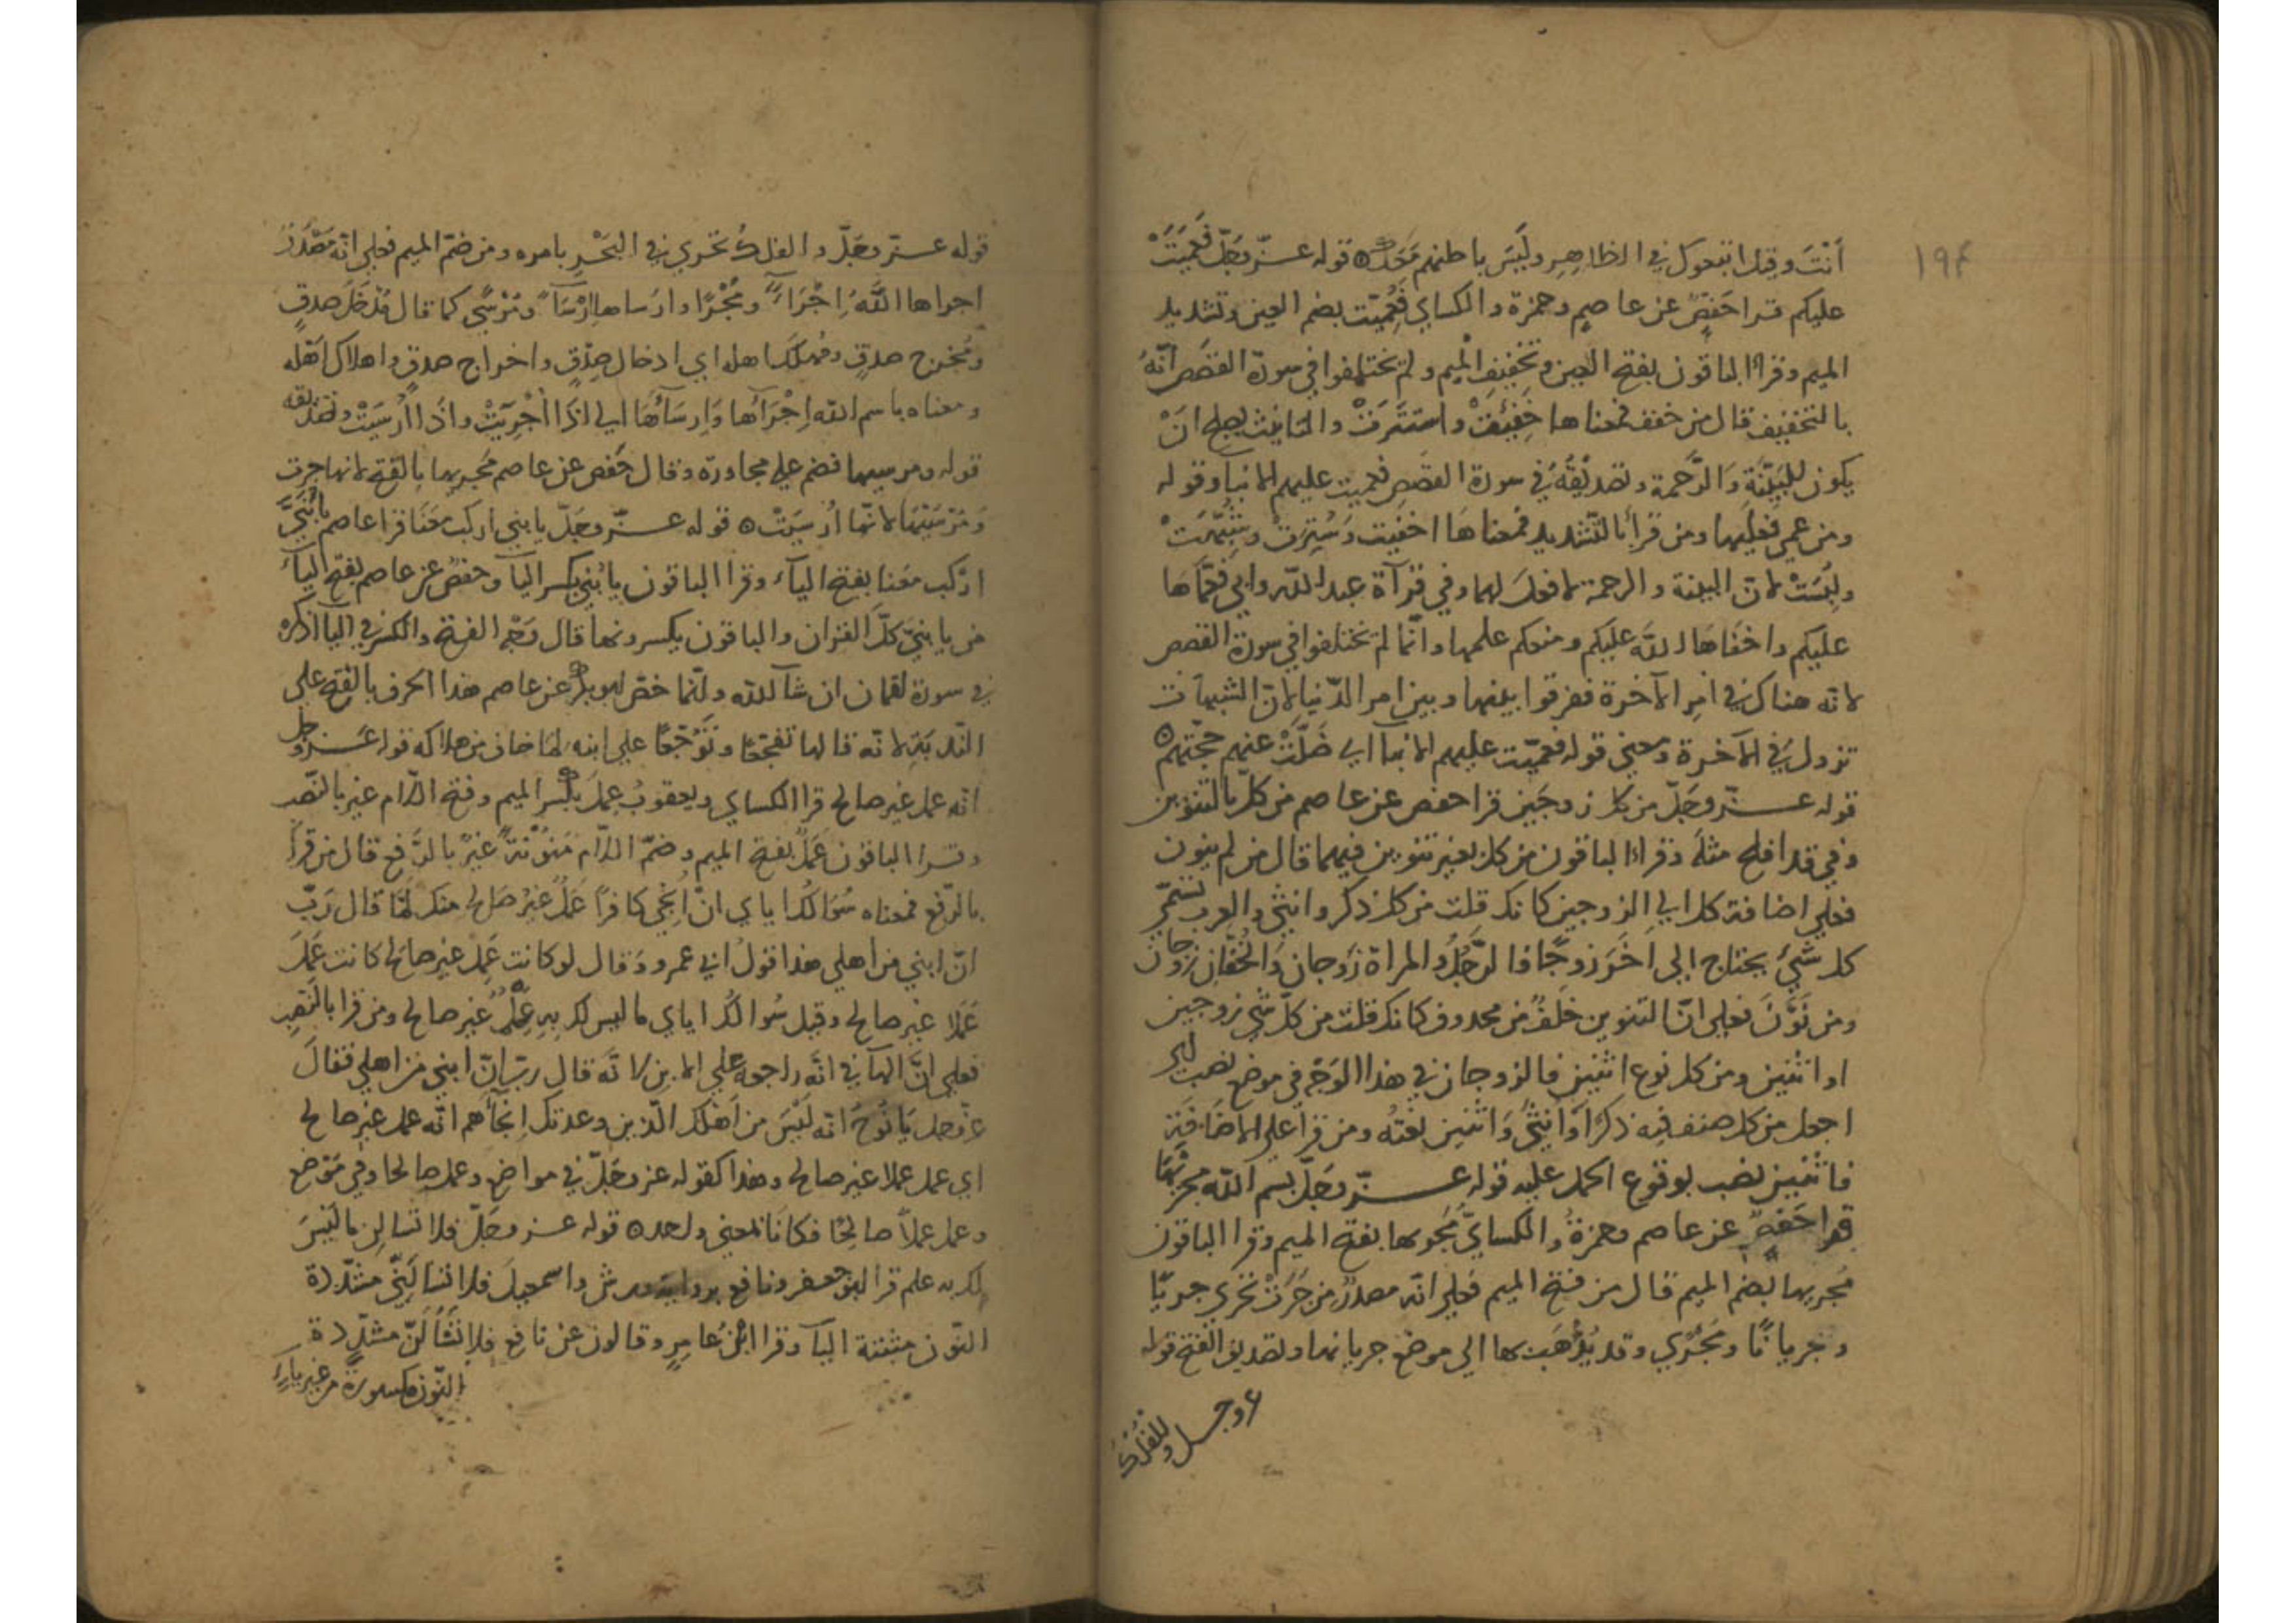 ١٩٤
أَنْتَ وقيل اتبعوك في الظاهِرِ ولَيسَ باطنهم مَعَك ه قوله عــزّ وَجَلّ فَعَمِيَتْ
عليكم قرا حَفصٌ عن عاصمٍ وحمزة والكساي فَعُمِّيَت بضم العين وتشديد
الميم وقراَ الباقون بفتح العين وتخفيف الميم ولم يختلفوا في سورة القصَص أنّهُ
بالتخفيف قال من خفف فمعناها خَفِيَتْ واستَتَرَتْ والتانيث يصلح انْ
يكون للبَيّنَةِ وَالرَّحمة وتصديقُهُ في سورة القصَصِ فعميت عليهم الانبآ وقوله
ومن عمي فعليها ومن قرأ بالتّشديد فمعناهَا اخفيت وَسُتِرَتْ وشُبِّهَتْ
ولُبِسَتْ لانّ البينة والرحمة لا فعلَ لهما وفي قرآة عبد اللّه وابي فعَمّاهَا
عليكم واخفَاهَا اللّه عليكم ومنعكم علمها وانّما لم يختلفوا في سورة القصص
لانه هناك في امرِ الآخرة ففرقوا بينها وبين امر الدّنيا لانّ الشبهات
تزول في الآخرة ومعنى قوله فعميت عليهم الانبآ اي ضَلَّتْ عنهم حُجّتهم ه
قوله عــزّ وجَلّ من كل زوجَين قرا حفص عن عاصم من كلٍّ بالتنوين
وفي قد افلح مثلَه وقراَ الباقون من كل بغير تنوين فيهما قال من لم ينون
فعلى اضافة كل الي الزوجين كانك قلت من كل ذكر وانثي والعرب تسمّي
كل شيْ يحتاج الى اخَرَ زوجًا فالرَّجُلُ والمراة زَوجان وَالخُفَّانِ زوجان
ومن نَوَّنَ فعلى انّ التنوين خلَفٌ من محذوف كانك قلت من كلّ شي زوجين
او اثنين ومن كل نوع اثنين فالزوجان في هذا الوَجْهِ في موضع نصب اي
اجعل من كل صنف فيه ذكرًا وَانثي وَاثنين نعتُه ومن قرأ علي الاضَافَةِ
فاثنين نصب بوقوع احمل عليه قوله عــزّ وجَلّ بسم اللّه مجريهَا
قرا حَفصٌ عن عاصم وحمزةُ والكسايُّ مَجريها بفتح الميم وقرا الباقون
مُجريها بضم الميم قال من فتح الميم فعلى انه مصدرٌ من جَرَتْ تجري جريًا
وجريانًا ومَجْرًي وقد يُذْهَب بها الى موضع جريانها وتصديق الفتح قوله
عز وجل والفلك
قوله عــزّ وجَلّ والفلكُ تجري في البَحْرِ بامره ومن ضمّ الميم فعلى انّه مَصْدَرُ
اجراها اللَّهُ إِجْرَاءً ومُجْرًا وارساها إرْسَآءً ومُرْسًي كما قال مُدْخَلَ صدقٍ
ومُخرَج صدقٍ ومُهلَكَ اهله اي ادخال صِدْقٍ واخراج صدقٍ واهلاك اَهْله
ومعناه باسم اللّه إجْرَآؤها وَإرسَآؤُهَا اي اذَا أُجْرِيَتْ واذَا أُرْسِيَتْ وتصديقه
قوله ومرسيها فضم علي مجاورة وقال حَفص عن عاصم مَجريها بالفتح لانها جرت
وَمُرْسَيهَا لانّها اُرْسِيَتْ ه قوله عــزّ وجَلّ يا بني اركب مَعَنَا قرا عاصم يا بُنَيَّ
ارْكب مَعَنا بفتح اليآء وقرا الباقون يا بُنيِّ بكسر اليآ وحفصٌ عن عاصم بفتح اليآءَ
من يا بنيَّ كلّ القران والباقون يكسرونها قال وَجْهُ الفتح والكسر في اليآ اذكره
في سورة لقمان ان شآ اللّه وانّما خصّ ابو بكر عن عاصم هذا الحرف بالفتح على
النّدبَةِ لانّه قالها تفجّعًا وتَوَجّعًا على ابنه لمّا خاف من هلاكه قوله عــزّ وجل
انّه عمل غير صالح قرا الكساي ويعقوبُ عِمِلَ بكسر الميم وفتح اللام غير بالنّصب
وقــرا الباقون عَمَلٌ بفتح الميم وضمّ اللّام مُنَوّنَةً غيرُ بالرَّفع قال من قرأ
بالرّفع فمعناه سُوَالكَ اياي انْ اُنجِيَ كافرًا عَمَلٌ غيرُ صَالحٍ منك لمّا قال رَبّ
انّ ابني من اهلي هذا قولُ ابي عمرو وَقال لو كانت عَمِلَ غير صالح كانت عَمِلَ
عَمَلا غير صالح وقيل سُوالكَ اياي ما ليس لك بِهِ عِلْمٌ غير صالح ومن قرا بالنّصب
فعلى انَّ الهآ في انّه راجعة علي الابن لانّه قال ربّ انّ ابني من اهلي فقالَ
عزّ وجل يَا نُوحُ انّه لَيْسَ من اَهلك الّذين وعدتك اِنجآءَهم انّه عمل غير صالح
اي عمل عملا غير صالح وهذا كقوله عز وجَلّ في مواضع وعمل صالحا وفي مَوضع
وعمل عملاً صالِحًا فكانَا بمعنى واحد ه قوله عــز وجَلّ فلا تسالن ما لَيسَ
لك به علم قرا ابو جعفر ونافع برواية ورش واسمعيلَ فلا تسالَنِّي مشدّدة
النّون مثبتة اليآ وقرا ابنُ عامِرٍ وقالون عن نافع فلا تَسْأَلَنِّ مشدّدة
النّون مكسورة من غير ياءٍ